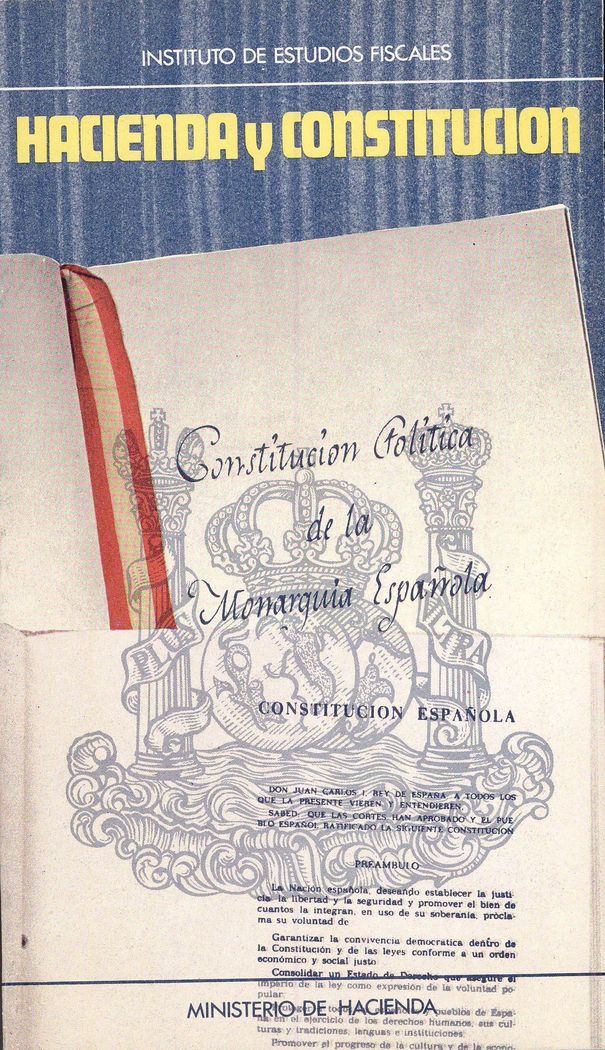 INSTITUTO DE ESTUDIOS FISCALES
HACIENDA y CONSTITUCION
Constitucion Política
de la
Monarquia Española
PLUS
ULTRA
CONSTITUCION ESPAÑOLA
DON JUAN CARLOS I, REY DE ESPAÑA, A TODOS LOS
QUE LA PRESENTE VIEREN Y ENTENDIEREN,
SABED: QUE LAS CORTES HAN APROBADO Y EL PUE
BLO ESPAÑOL RATIFICADO LA SIGUIENTE CONSTITUCION
PREAMBULO
La Nación española, deseando establecer la justi-
cia, la libertad y la seguridad y promover el bien de
cuantos la integran, en uso de su soberanía, procla-
ma su voluntad de
Garantizar la convivencia democrática dentro de
la Constitución y de las leyes conforme a un orden
económico y social justo
Consolidar un Estado de Derecho que asegure el
imperio de la ley como expresión de la voluntad po-
pular.
MINISTERIO DE HACIENDA
Proteger a todos los españoles y pueblos de Espa-
ña en el ejercicio de los derechos humanos, sus cul-
turas y tradiciones, lenguas e instituciones.
Promover el progreso de la cultura y de la econo-